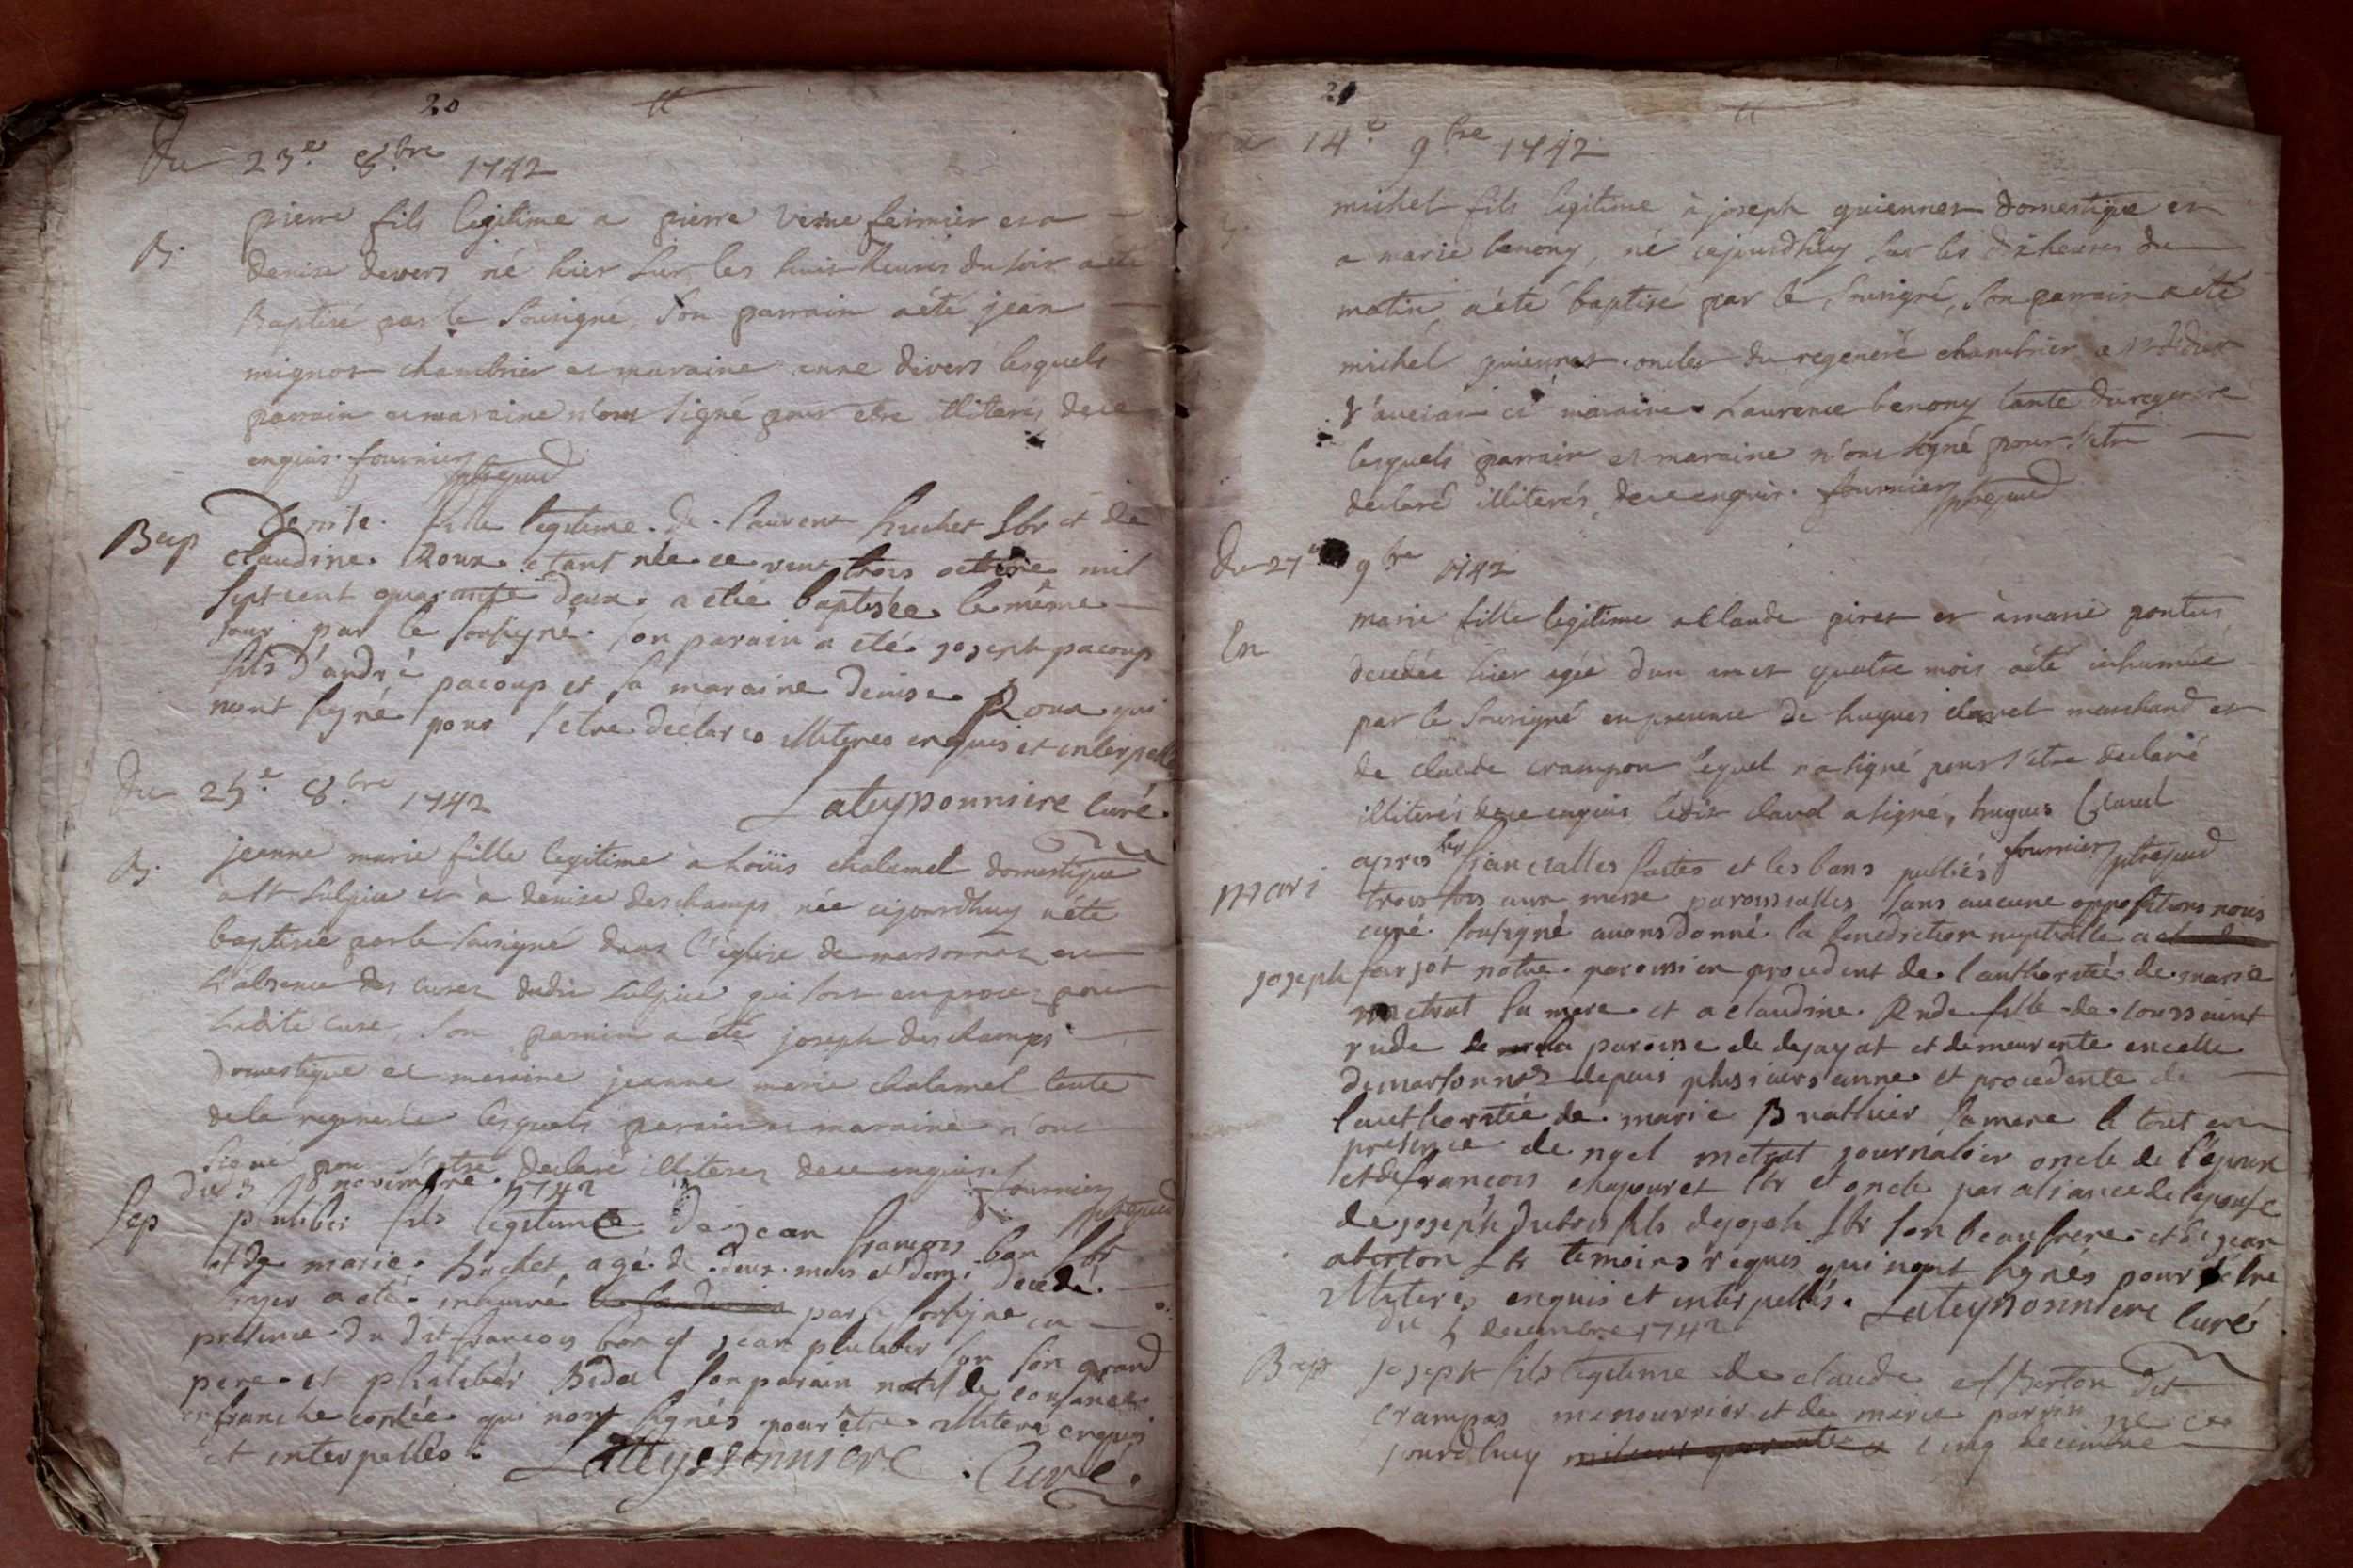 20
Du 23e 8bre 1742
B.
pierre fils legitime a pierre verne fermier et a
denise devers né hier sur les huit heures du soir a eté
Baptisé par le sousigné, son parrain a été jean
mignot chambrier et maraine anne divers lesquels
parrain et maraine n'ont signé pour etre illiterés, de ce
enquis. fournier
Bap
Denise. fille legitime. de. laurent huchet lbr et de
claudine. Roux. etant née ce vent trois octobre mil
sept cent quarante deux. a eté baptisée le même
jour par le sousigné. son parain a eté. joseph pacoup
fils d'andré pacoup et sa maraine denise. Roux qui
nont signé pour s'etre declareo illitereo enquis et interpellé
Lateyssonniere Curé.
Du 25e 8bre 1742
B.
jeanne marie fille legitime à Loüis chalamel domestique
a st sulpice et à denise deschamps née cejourdhuy a été
baptisée par le sousigné dans l'eglise de marsonnas en
L'absence des curez dudit sulpice qui sont en procez pour
Ladite cure, son parrain a été joseph deschamps
domestique et maraine jeanne marie chalamel tante
de la regenerée lesquels parain et maraine n'ont
signé pour s'etre declaré illiterez de ce enquis. fournier
du 18 novembre. 1742
Sep
philibert fils legitime de jean françois bon lbr
et de marie. huchet, agé. de. deux. mois et demi decedé.
hyer a eté. inhumé par le sousigné en
presence du dit françois bon et jean philibert bon son grand
pere. et philibert Bidal son parain natif de confance
en franche contée. qui nont signés pour etre. illiteré enquis
et interpellés. Lateyssonniere. Curé.
21
14e 9bre 1742
michel fils legitime à joseph guiennet domestique et
a marie benony, né cejourdhuy sur les dix heures du
matin, a été baptisé par le sousigné, son parrain a été
michel guiennet. oncle du regeneré chambrier a st didier
et maraine Laurence benony tante du regeneré
lesquels parrain et maraine n'ont signé pour s'etre
declaré illiterés, de ce enquis. fournier
Du 27e 9bre 1742
En
marie fille legitime a Claude piret et à marie pontus,
decedée hier agée d'un an et quatre mois a été inhumée
par le sousigné en presence de hugues clavel marchand et
de claude crampon lequel n'a signé pour s'etre declaré
illiterés de ce enquis ledit clavel a signé, hugues Clavel
fournier
mari
apres les fiancialles faites et les bans publiés
trois fois aux messe paroissialles sans aucune oppositions nous
curé. sousigné avons donné. la benediction nuptialle a
joseph farjot notre. paroissien procedent de. l'authorité. de. marie
metrat sa mere. et a claudine. Rude fille de. toussaint
rude de la paroisse de dejayat et demeurente en celle
de marsonnas depuis plusieurs anne. et procedente de
l'authoritée de. marie Bruathier sa mere le tout en
presence de noel metrat journalier oncle de l'epoux
et de françois chapouret lbr et oncle par aliance de l'epouse
de joseph dubois fils de joseph lbr son beau frere. et de jean
aberton lbr temoins requis qui nont signés pour s'etre
illiterés enquis et interpellés. Lateyssonniere Curé
du 5 decembre 1742
Bap
joseph fils legitime de claude alberton dit
crampas et de marie parrin né ce
jourdhuy cinq decembre